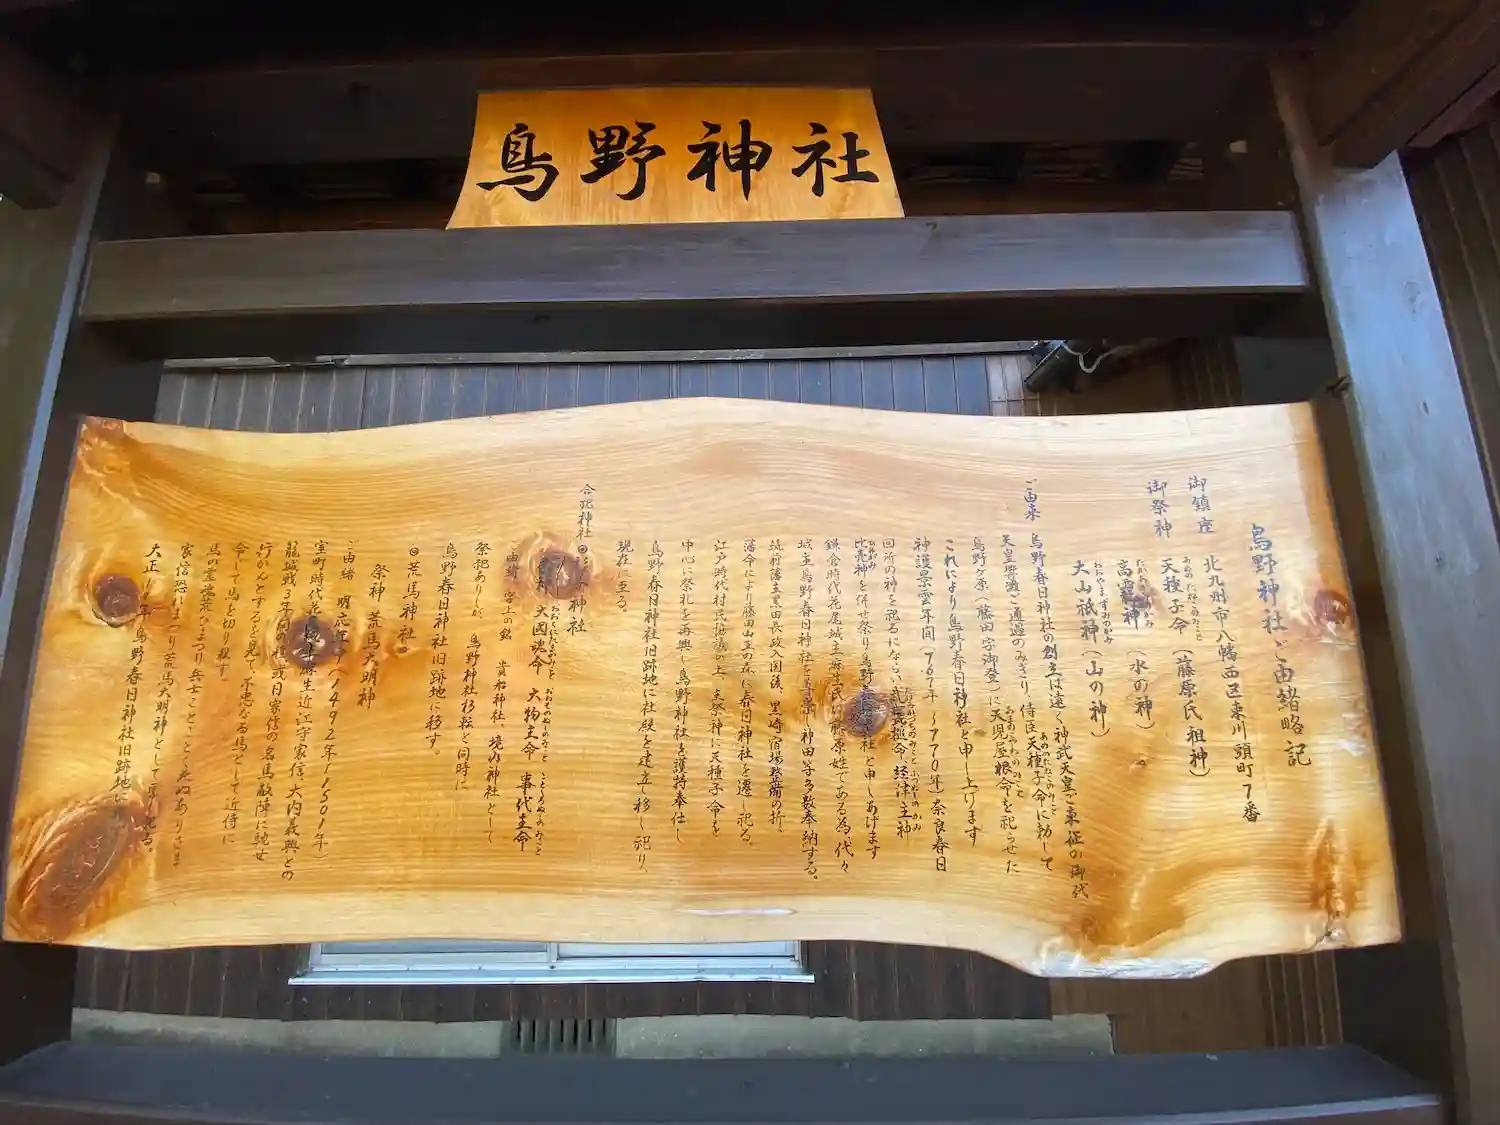 鳥野神社
鳥野神社ご由緒略記
御鎮座 北九州市八幡西区東川頭町7番
御祭神 天種子命（藤原氏祖神）
あめのたねこのみこと
高龗神（水の神）
たかおかみのかみ
大山祇神（山の神）
おおやまずみのかみ
ご由来 鳥野春日神社の創立は遠く神武天皇ご東征の御代
天皇響灘ご通過のみぎり、侍臣天種子命に勅して
あめのたねこのみこと
鳥野ヶ原（藤田字御登）に天児屋根命を祀らせた
あまのこやねのみこと
これにより鳥野春日神社と申し上げます
神護景雲年間（767年～770年）奈良春日
四所の神を祀るにならい武甕槌命、経津主神
たけみかづちのみこと ふつぬしのかみ
比売神を併せ祭り鳥野春日神社と申しあげます
ひめがみ
鎌倉時代花尾城主麻生氏は藤原姓である為、代々
城主鳥野春日神社を尊崇し神田等多数奉納する。
筑前藩主黒田長政入国後、黒崎宿場整備の折、
藩命により藤田山王の森に春日神社を遷し祀る。
江戸時代村民協議の上、主祭神に天種子命を
中心に祭礼を再興し鳥野神社を護持奉仕し
鳥野春日神社旧跡地に社殿を建立て移し祀り、
現在に至る。
合祀神社
神社
大國魂命 大物主命 事代主命
おおくにたまのみこと おおものぬしのみこと ことしろぬしのみこと
ご由緒 字上の銘 貴船神社、境内神社として
祭祀ありしが、鳥野神社移転と同時に
鳥野春日神社旧跡地に移す。
荒馬神社
祭神 荒馬大明神
ご由緒 明応年中（1492年～1501年）
室町時代花尾城主麻生近江守家信、大内義興との
籠城戦3年間の程、或日家信の名馬敵陣に馳せ
行かんとするを見て、不忠なる馬として近侍に
命じて馬を切り殺す。
馬の霊魂荒ひまつり兵士ことごとく死ぬありさま
家信恐れまつり荒馬大明神として祭り祀る。
大正 年鳥野春日神社旧跡地に